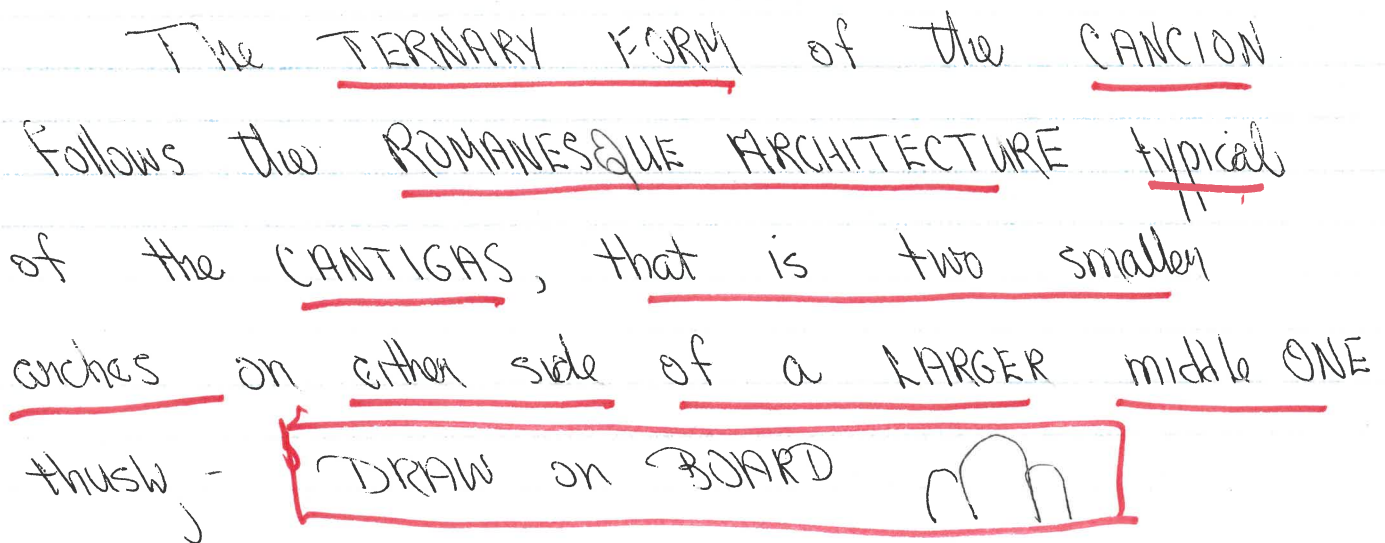 The TERNARY FORM of the CANCION
follows the ROMANESQUE ARCHITECTURE typical
of the CANTIGAS, that is two smaller
arches on either side of a LARGER middle ONE
thusly - DRAW on BOARD